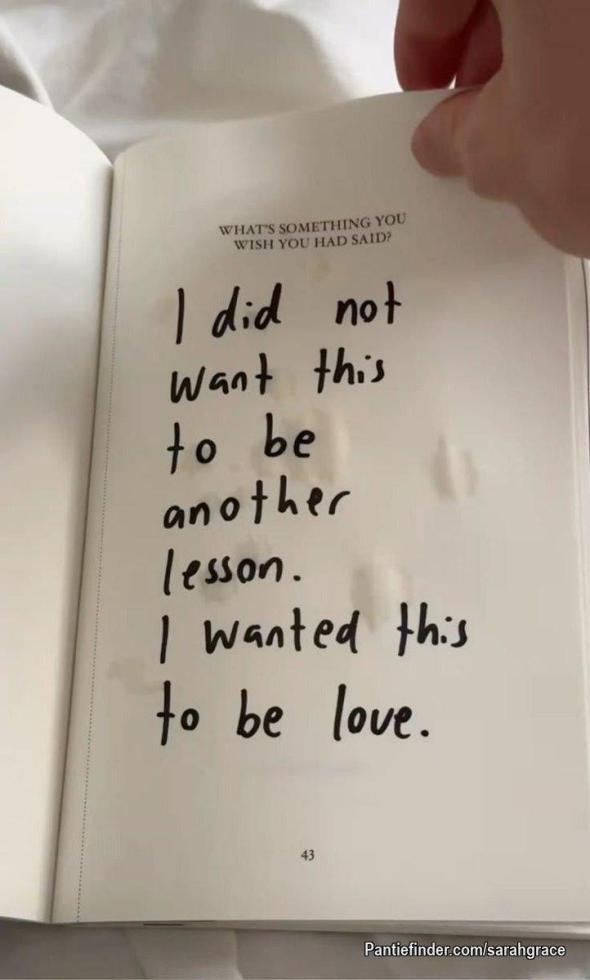 WHAT'S SOMETHING YOU
WISH YOU HAD SAID?
I did not
want this
to be
another
lesson.
I wanted this
to be love.
43
Pantiefinder.com/sarahgrace